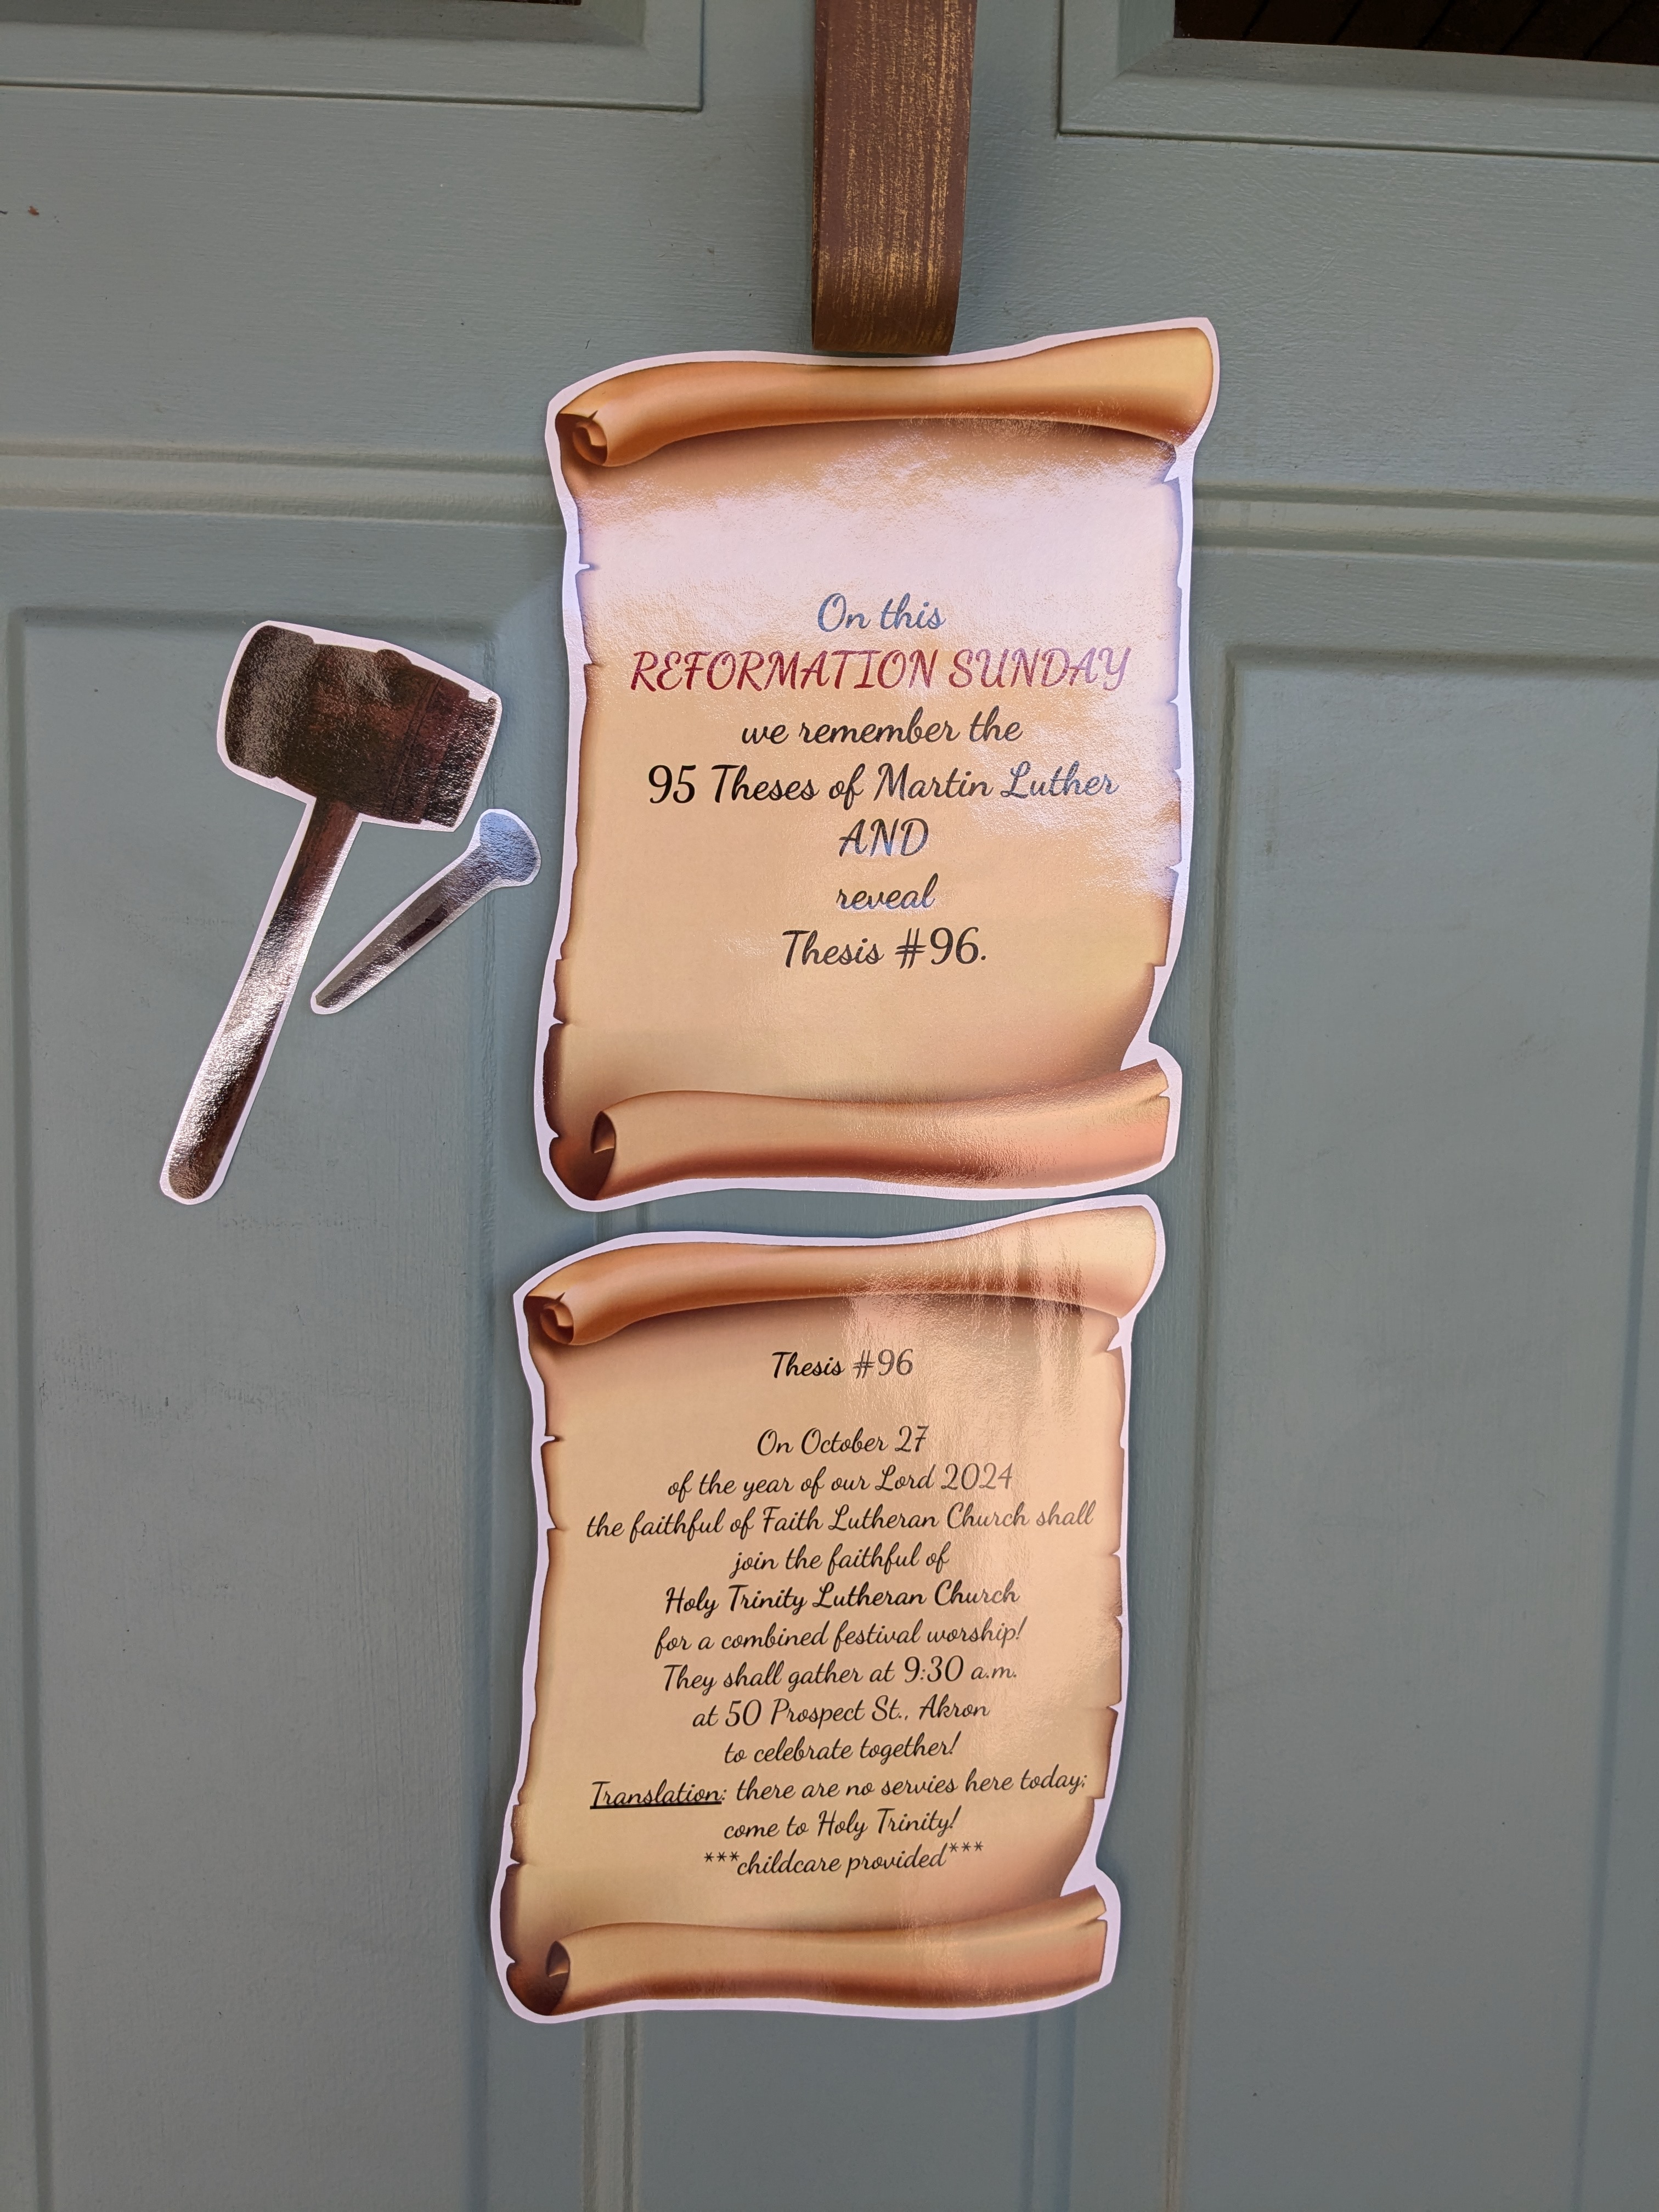 On this
REFORMATION SUNDAY
we remember the
95 Theses of Martin Luther
AND
reveal
Thesis #96.
Thesis #96
On October 27
of the year of our Lord 2024
the faithful of Faith Lutheran Church shall
join the faithful of
Holy Trinity Lutheran Church
for a combined festival worship!
They shall gather at 9:30 a.m.
at 50 Prospect St., Akron
to celebrate together!
Translation: there are no servies here today;
come to Holy Trinity!
***childcare provided***